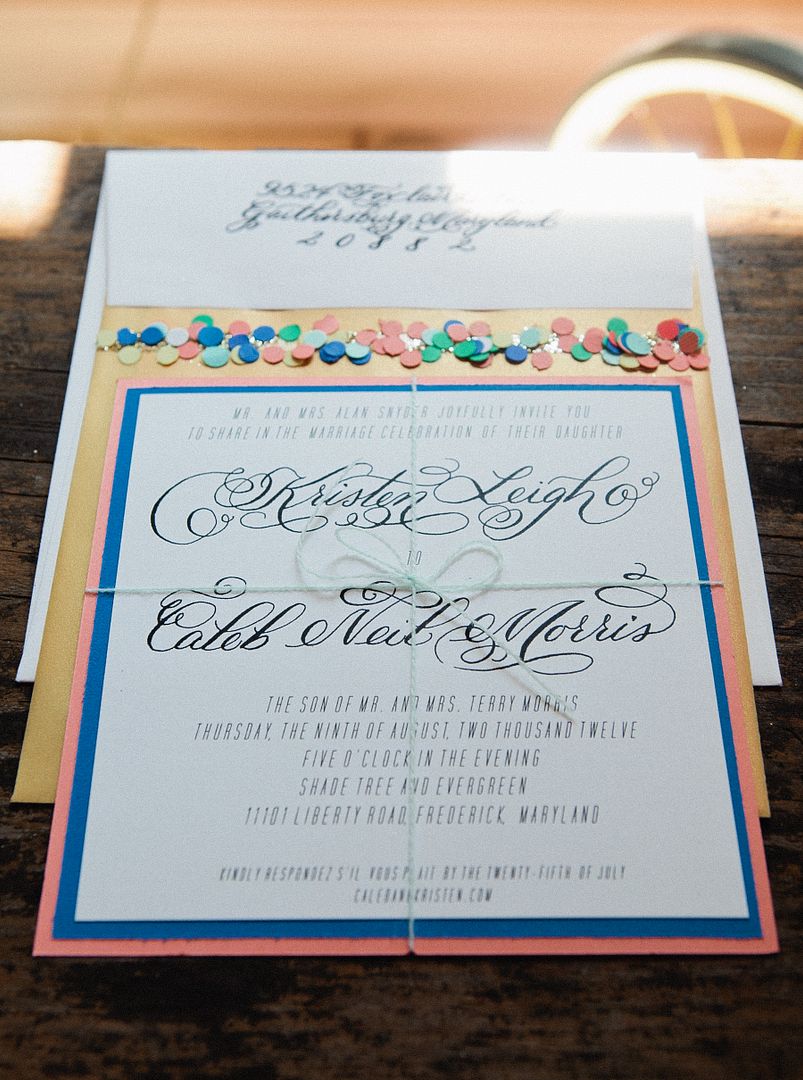 9524
Gaithersburg, Maryland
20882
MR. AND MRS. ALAN SNYDER JOYFULLY INVITE YOU
TO SHARE IN THE MARRIAGE CELEBRATION OF THEIR DAUGHTER
Kristen Leigh
TO
Caleb Neil Morris
THE SON OF MR. AND MRS. TERRY MORRIS
THURSDAY, THE NINTH OF AUGUST, TWO THOUSAND TWELVE
FIVE O'CLOCK IN THE EVENING
SHADE TREE AND EVERGREEN
11101 LIBERTY ROAD, FREDERICK, MARYLAND
KINDLY RESPONDEZ S'IL VOUS PLAIT BY THE TWENTY-FIFTH OF JULY
CALEBANDKRISTEN.COM